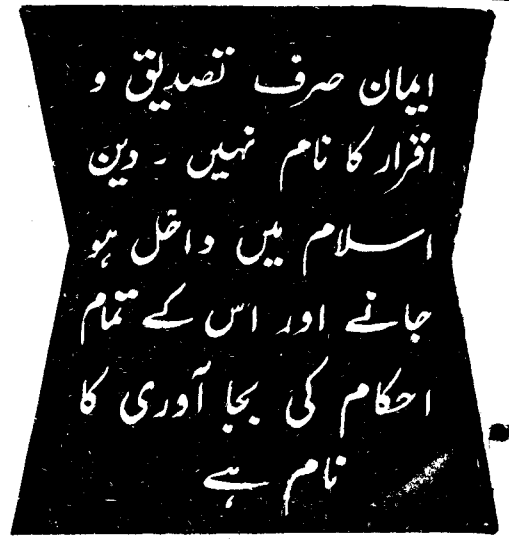 ایمان صرف تصدیق و
اقرار کا نام نہیں ۔ دین
اسلام میں داخل ہو
جانے اور اس کے تمام
احکام کی بجا آوری کا
نام ہے